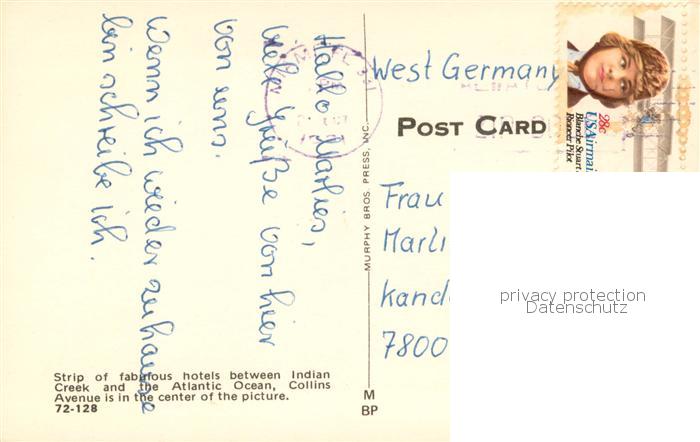 Hallo Marlies,
viele Grüße von hier
von uns.
Wenn ich wieder zuhause
bin schreibe ich.
Strip of fabulous hotels between Indian
Creek and the Atlantic Ocean, Collins
Avenue is in the center of the picture.
72-128
MURPHY BROS. PRESS, INC.
M
BP
West Germany
POST CARD
28c
USAirmail
Blanche Stuart
Pioneer Pilot
Frau
Marli
Kand
7800
privacy protection
Datenschutz